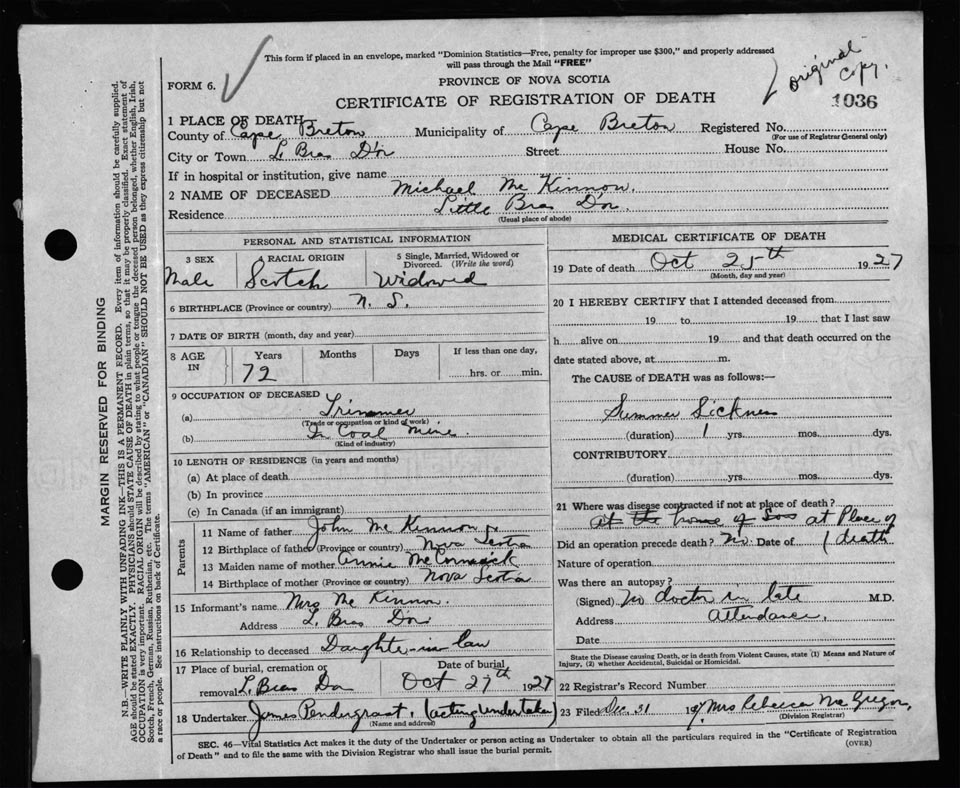 This form if placed in an envelope, marked "Dominion Statistics—Free, penalty for improper use $300," and properly addressed
will pass through the Mail "FREE"
original
copy.
FORM 6.
PROVINCE OF NOVA SCOTIA
CERTIFICATE OF REGISTRATION OF DEATH
1036
1 PLACE OF DEATH
County of Cape Breton Municipality of Cape Breton Registered No.
(For use of Registrar General only)
City or Town L. Bras D'or Street House No.
If in hospital or institution, give name
2 NAME OF DECEASED Michael Mc Kinnon.
Residence Little Bras D'or.
(Usual place of abode)
PERSONAL AND STATISTICAL INFORMATION
3 SEX 4 RACIAL ORIGIN 5 Single, Married, Widowed or
Divorced. (Write the word)
Male Scotch Widowed
6 BIRTHPLACE (Province or country) N. S.
7 DATE OF BIRTH (month, day and year)
8 AGE IN Years Months Days If less than one day,
72 hrs. or min.
9 OCCUPATION OF DECEASED
(a) Trimmer
(Trade or occupation or kind of work)
(b) In Coal Mine.
(Kind of industry)
10 LENGTH OF RESIDENCE (in years and months)
(a) At place of death
(b) In province
(c) In Canada (if an immigrant)
Parents
11 Name of father John Mc Kinnon
12 Birthplace of father (Province or country) Nova Scotia
13 Maiden name of mother Annie McCormick
14 Birthplace of mother (Province or country) Nova Scotia
15 Informant's name Mrs Mc Kinnon.
Address L. Bras D'or
16 Relationship to deceased Daughter-in-law
17 Place of burial, cremation or Date of burial
removal L. Bras Dor Oct 27th 1927
18 Undertaker James Pendergrast. (acting undertaker)
(Name and address)
MEDICAL CERTIFICATE OF DEATH
19 Date of death Oct 25th 1927
(Month, day and year)
20 I HEREBY CERTIFY that I attended deceased from
19 to 19 that I last saw
h alive on 19 and that death occurred on the
date stated above, at m.
The CAUSE of DEATH was as follows:—
Summer Sickness
(duration) 1 yrs. mos. dys.
CONTRIBUTORY
(duration) yrs. mos. dys.
21 Where was disease contracted if not at place of death?
at the home of Son at Place of
Did an operation precede death? No. Date of death
Nature of operation
Was there an autopsy?
(Signed) No doctor in late M.D.
Address attendance.
Date
State the Disease causing Death, or in death from Violent Causes, state (1) Means and Nature of
Injury, (2) whether Accidental, Suicidal or Homicidal.
22 Registrar's Record Number
23 Filed Dec. 31 Mrs Rebecca McGregor,
(Division Registrar)
SEC. 46—Vital Statistics Act makes it the duty of the Undertaker or person acting as Undertaker to obtain all the particulars required in the "Certificate of Registration
of Death" and to file the same with the Division Registrar who shall issue the burial permit.
(OVER)
MARGIN RESERVED FOR BINDING
N.B.—WRITE PLAINLY WITH UNFADING INK—THIS IS A PERMANENT RECORD. Every item of information should be carefully supplied.
AGE should be stated EXACTLY. PHYSICIANS should STATE CAUSE OF DEATH in plain terms, so that it may be properly classified. Exact statement of
OCCUPATION is very important. RACIAL ORIGIN will be described by stating to what people or tongue the deceased person belonged, whether English, Irish,
Scotch, French, German, Russian, Ruthenian, etc. The terms "AMERICAN" or "CANADIAN" SHOULD NOT BE USED as they express citizenship but not
a race or people. See instructions on back of Certificate.